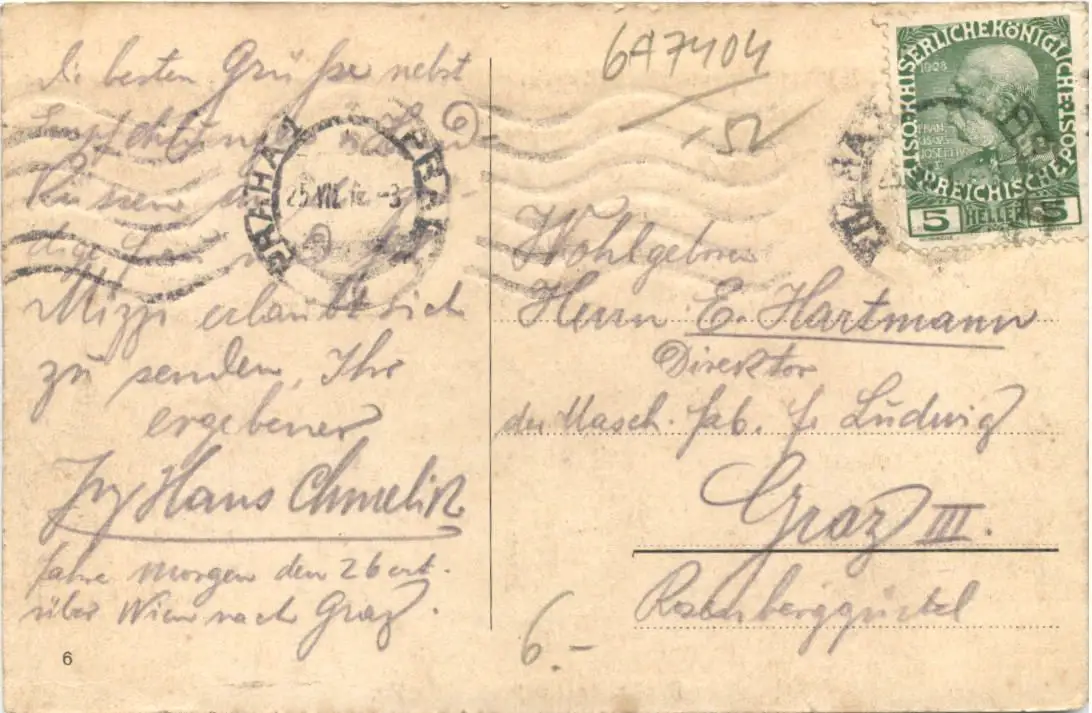 Die besten Grüße nebst
Empfehlungen u. Hand
küssen
dige Frau
Mizzi erlaubt sich
zu senden, Ihr
ergebener
Ing Hans Chmelik
fahre morgen den 26 ct.
über Wien nach Graz.
6
6A7404
152
PRAHA PRAG
25.VII. -3
PRAHA
KAISERLICHEKÖNIGLICHE ÖSTERREICHISCHE POST
1908
FRAN
CISCVS
JOSEPH I
5 HELLER 5
Wohlgeboren
Herrn E. Hartmann
Direktor
der Masch. fab. f. Ludwig
Graz III.
Rosenberggürtel
6.-